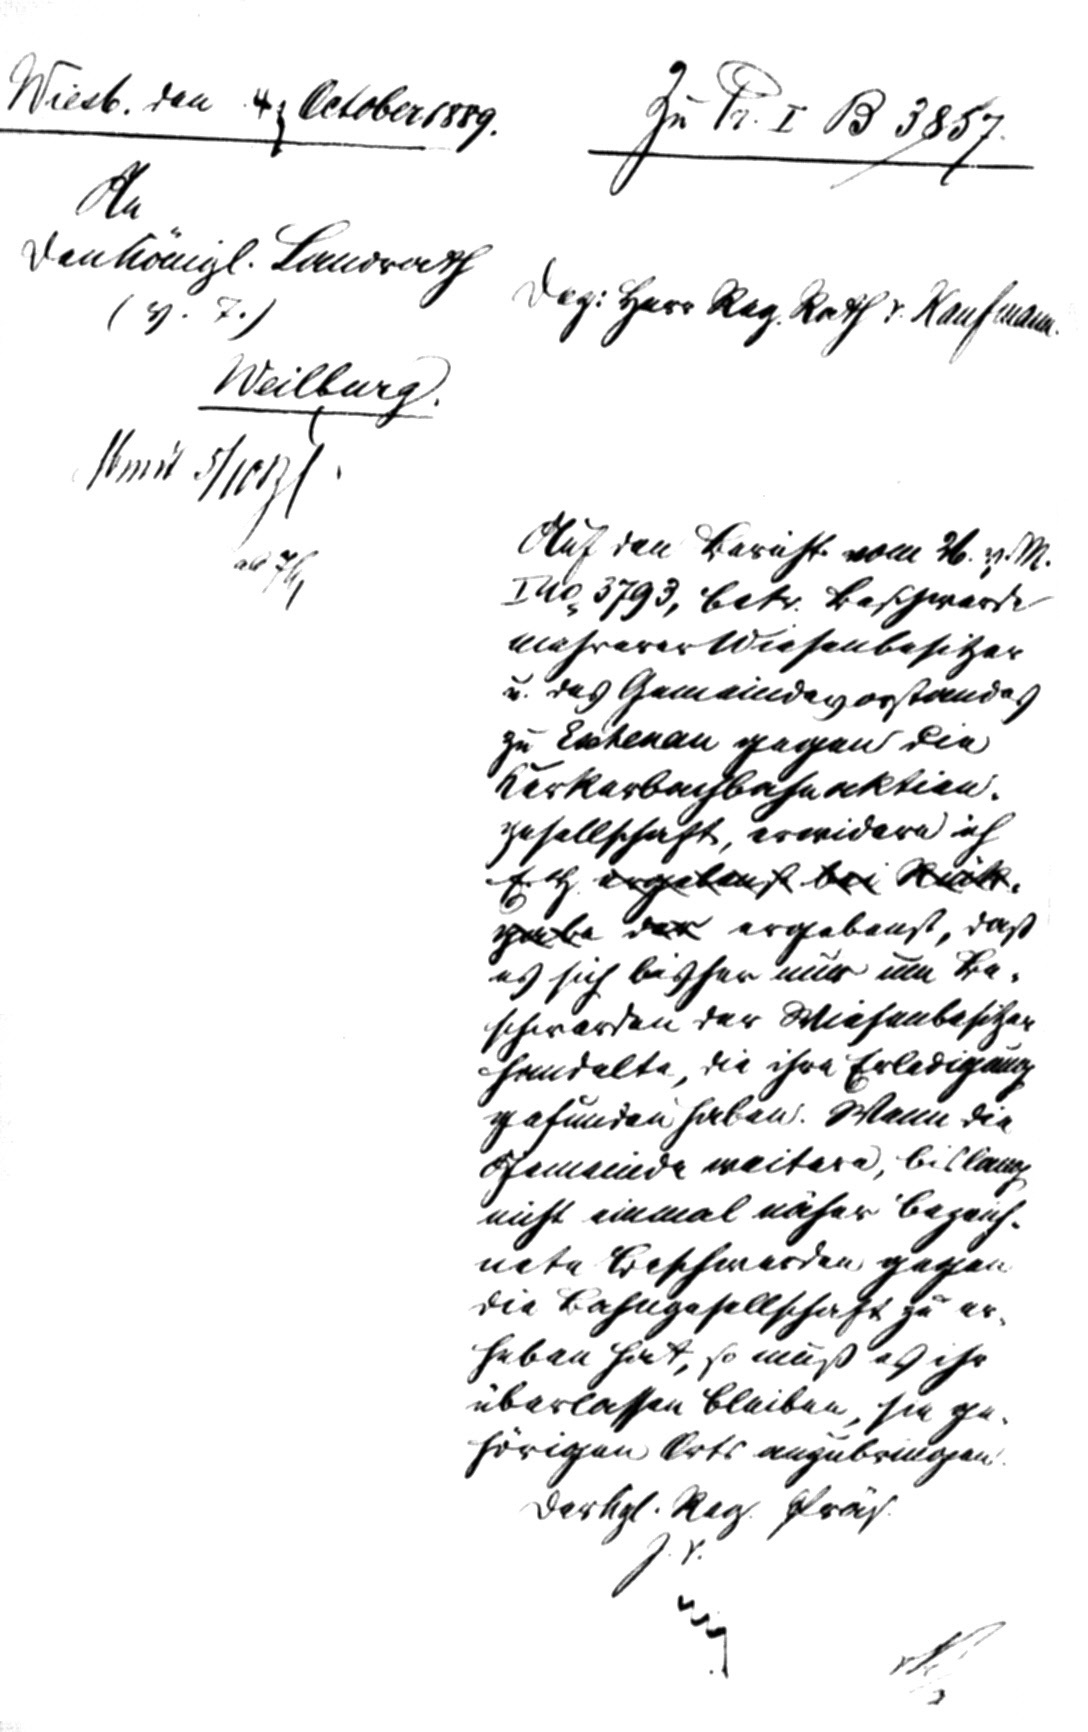 Wiesb. den 4. October 1889.
Zu Pr. I B 3857.
An
den Königl. Landrath
Dez: Herr Reg. Rath v. Kaufmann.
Weilburg.
Auf den Bericht vom 26. v. M.
I No 3793, betr. Beschwerde
mehrerer Wiesenbesitzer
u. des Gemeindevorstandes
zu Eschenau gegen die
Kerkerbachbahnaktien-
gesellschaft, erwidere ich
ergebenst bei Rück-
gabe der ergebenst, daß
es sich bisher nur um Be-
schwerden der Wiesenbesitzer
handelte, die ihre Erledigung
gefunden haben. Wenn die
Gemeinde weitere, bislang
nicht einmal näher bezeich-
nete Beschwerden gegen
die Bahngesellschaft zu er-
heben hat, so muß es ihr
überlassen bleiben, sie ge-
hörigen Orts anzubringen.
Der Kgl. Reg. Präs.
J. V.